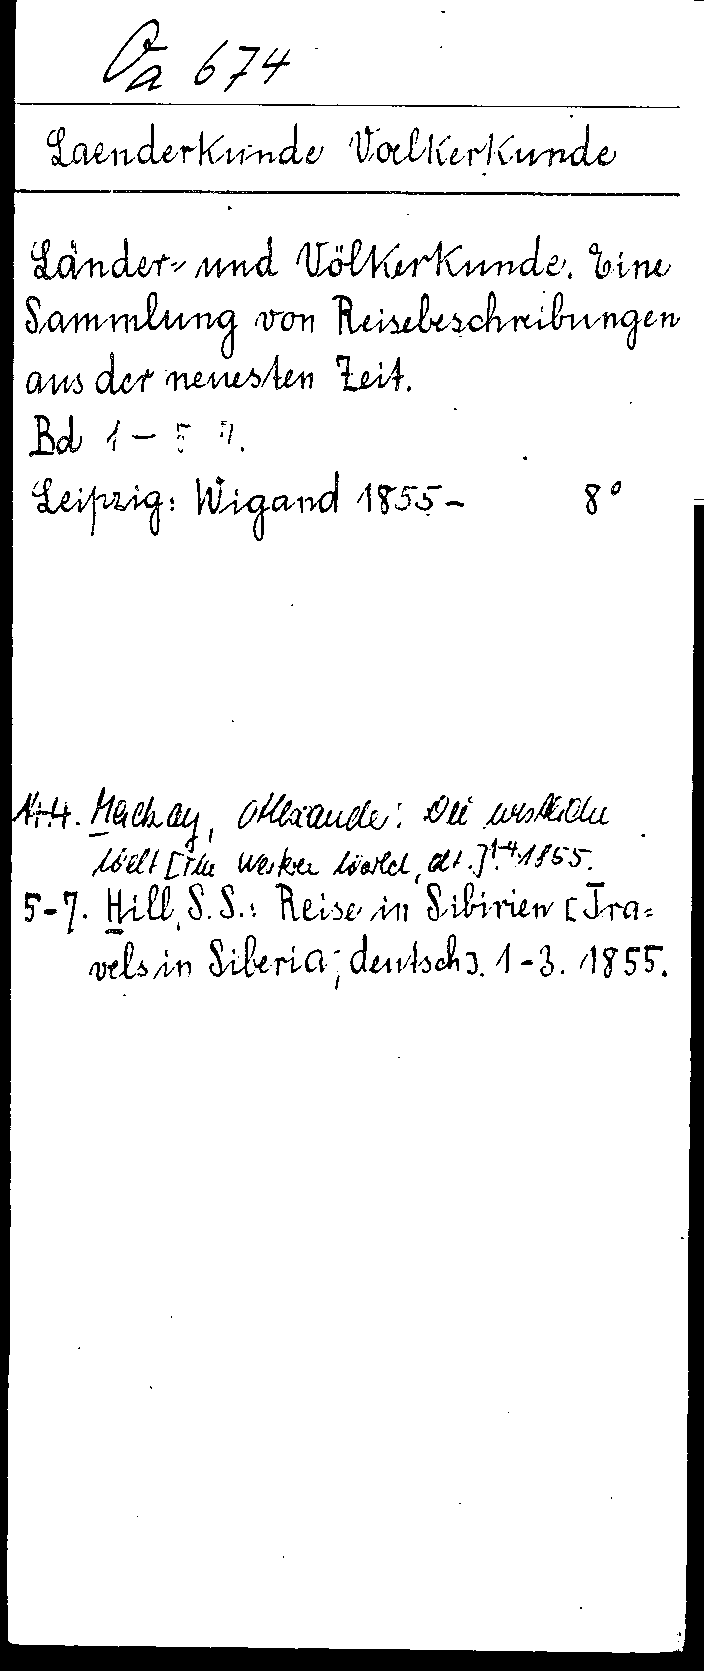 Oa 674
Laenderkunde Voelkerkunde
Länder- und Völkerkunde. Eine
Sammlung von Reisebeschreibungen
aus der neuesten Zeit.
Bd 1 – 5 7.
Leipzig: Wigand 1855– 8°
1-4. Mackay, Alexander: Die westliche
Welt [The Western World, dt.] 1-4 1855.
5-7. Hill, S. S.: Reise in Sibirien [Tra=
vels in Siberia; deutsch]. 1-3. 1855.